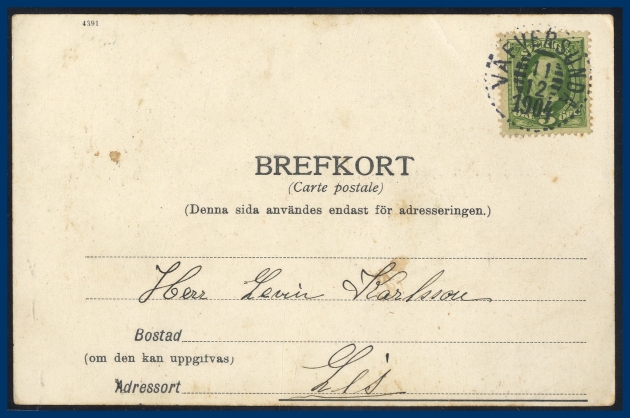 4391
VÄFVERSUNDA
11
12
1904
BREFKORT
(Carte postale)
(Denna sida användes endast för adresseringen.)
Herr Levin Karlsson
Bostad
(om den kan uppgifvas)
Adressort Lis